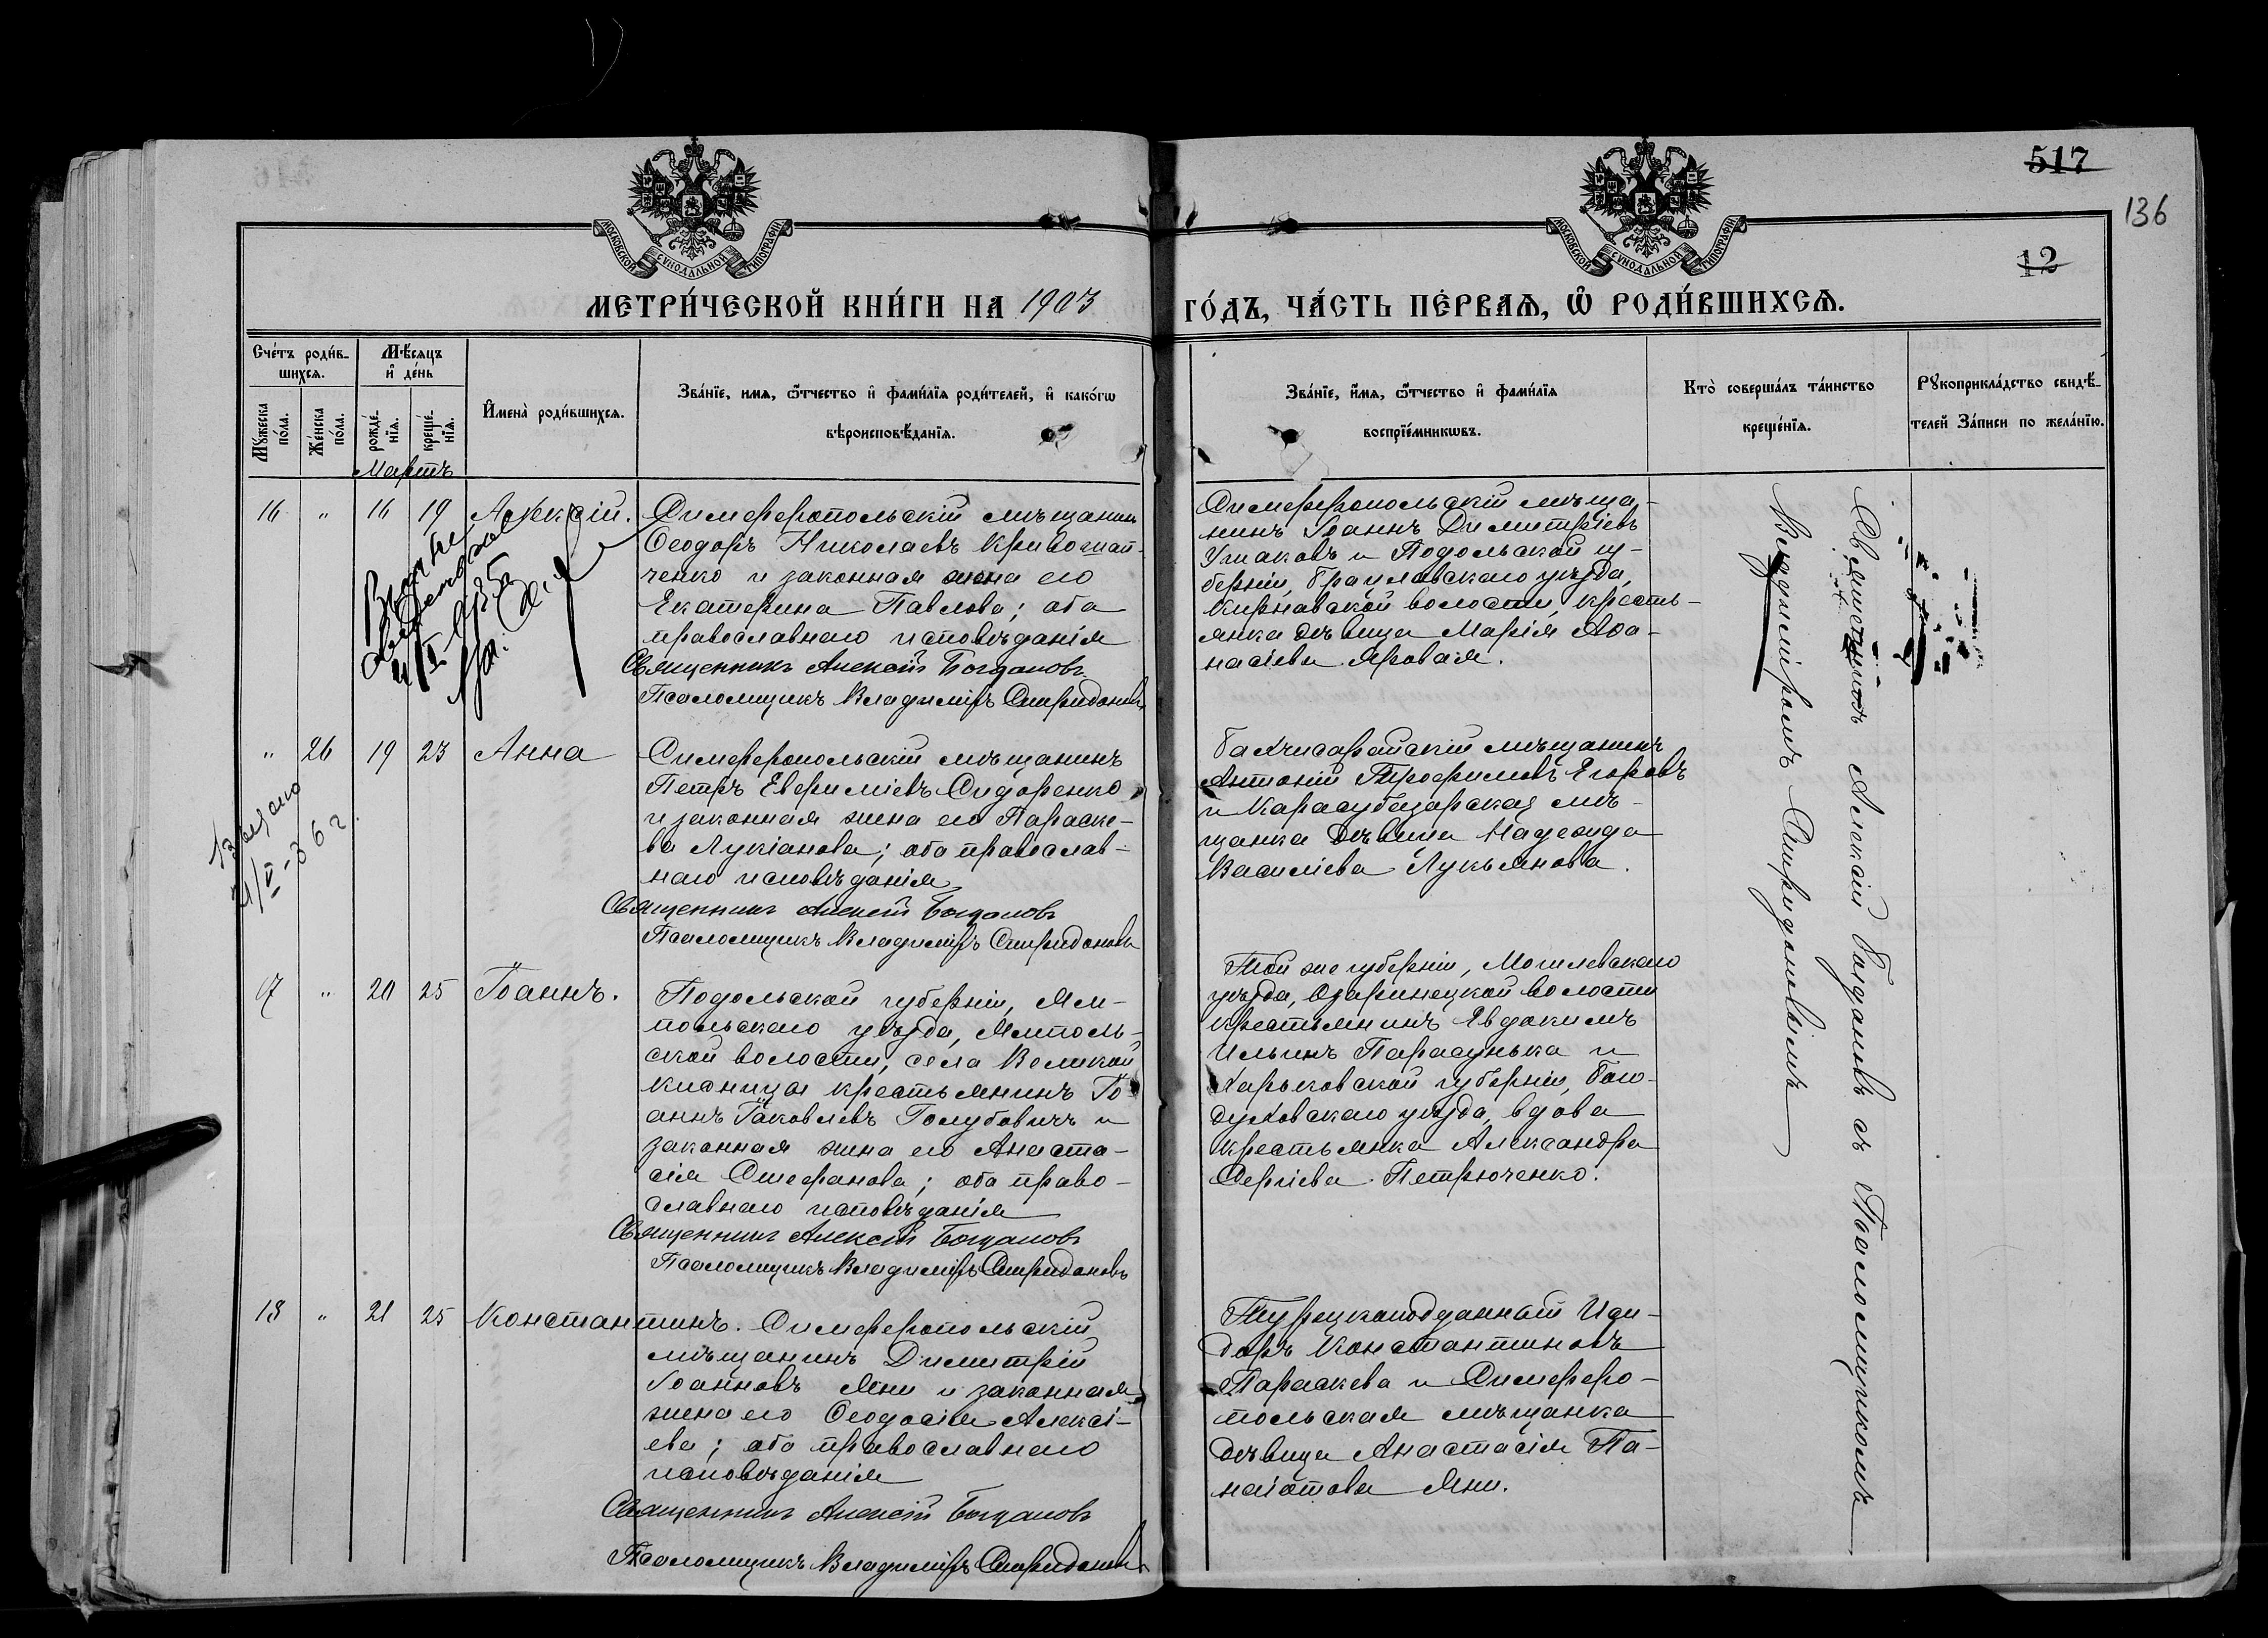 517
136
12
МОСКОВСКОЙ СѴНОДАЛЬНОЙ ТИПОГРАФІИ
МОСКОВСКОЙ СѴНОДАЛЬНОЙ ТИПОГРАФІИ
МЕТРИ́ЧЕСКОЙ КНИ́ГИ НА 1903
ГО́ДЪ, ЧА́СТЬ ПЕ́РВАѦ, Ѡ РОДИ́ВШИХСѦ.
Сче́тъ роди́в-
шихсѧ.
Мѣ́сѧцъ
и҆ де́нь
Мꙋ́жеска по́ла.
Же́нска по́ла.
рожде́-
нїѧ.
креще́-
нїѧ.
И҆мена̀ роди́вшихсѧ.
Зва́нїе, имѧ, ѻ҆́тчество и҆ фами́лїѧ роди́телей, и҆ како́гѡ
вѣроисповѣ́данїѧ.
Зва́нїе, и҆́мѧ, ѻ҆́тчество и҆ фами́лїѧ
воспрїе́мникѡвъ.
Кто̀ соверша́лъ та́инство
креще́нїѧ.
Рꙋкоприкла́дство свидѣ́-
телей За́писи по жела́нїю.
Мартъ
16 " 16 19 Алексій.
Симферопольскій мѣщанин
Ѳеодоръ Николаевъ Кривошап-
ченко и законная жена его
Екатерина Павлова; оба
православнаго исповѣданія
Священникъ Алексій Богдановъ
Псаломщикъ Владиміръ Спиридоновъ
Симферопольскій мѣща-
нинъ Іоаннъ Димитріевъ
Ушаковъ и Подольской гу-
берніи, Брацлавскаго уѣзда,
волости, кресть-
янка дѣвица Марія Аѳа-
насіева Яровая.
Священникъ Алексій Богдановъ съ Псаломщикомъ
Владиміромъ Спиридоновымъ
" 26 19 23 Анна
Симферопольскій мѣщанинъ
Петръ Евфиміевъ Сидоренко
и законная жена его Параске-
ва Лукіанова; оба православ-
наго исповѣданія
Священникъ Алексій Богдановъ
Псаломщикъ Владиміръ Спиридоновъ
Бахчисарайскій мѣщанинъ
Антоній Трофимовъ Егоровъ
и Карасубазарская мѣ-
щанка дѣвица Надежда
Василіева Лукьянова.
17 " 20 25 Іоаннъ.
Подольской губерніи, Ям-
польскаго уѣзда, Ямполь-
ской волости, села Великой
Кисницы крестьянинъ Іо-
аннъ Іаковлевъ Голубовичъ и
законная жена его Анаста-
сія Стефанова; оба право-
славнаго исповѣданія
Священникъ Алексій Богдановъ
Псаломщикъ Владиміръ Спиридоновъ
Той же губерніи, Могилевскаго
уѣзда, Озаринецкой волости
крестьянинъ Евдокимъ
Ильинъ Парасунька и
Харьковской губерніи, Бого-
духовскаго уѣзда, вдова
крестьянка Александра
Сергіева Петрюченко.
18 " 21 25 Константинъ.
Симферопольскій
мѣщанинъ Димитрій
Іоанновъ Яни и законная
жена его Ѳеодосія Алексі-
ева; оба православнаго
исповѣданія
Священникъ Алексій Богдановъ
Псаломщикъ Владиміръ Спиридоновъ
Турецкоподданный Иси-
доръ Константиновъ
Параскева и Симферо-
польская мѣщанка
дѣвица Анастасія Па-
наіотова Яни.